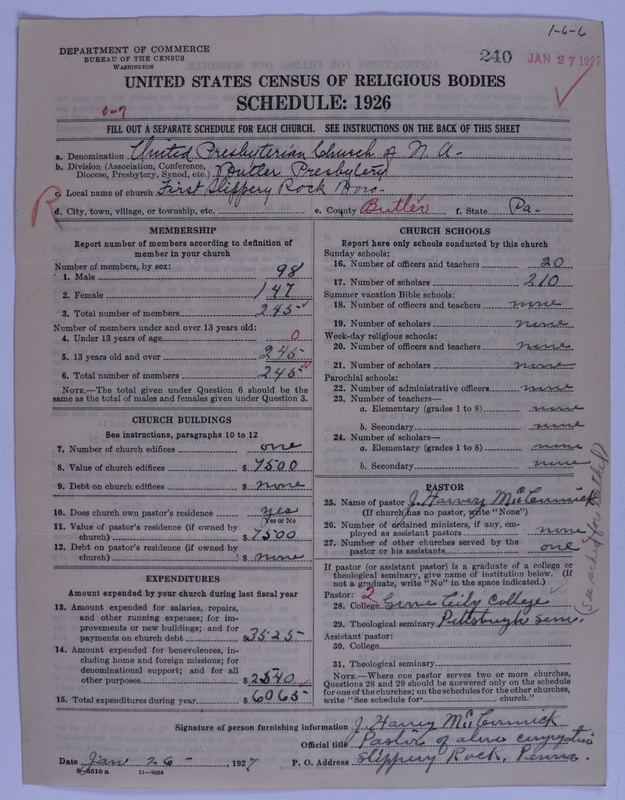 1-6-6
DEPARTMENT OF COMMERCE
BUREAU OF THE CENSUS
WASHINGTON
240
JAN 27 1927
UNITED STATES CENSUS OF RELIGIOUS BODIES
SCHEDULE: 1926
0-7
FILL OUT A SEPARATE SCHEDULE FOR EACH CHURCH. SEE INSTRUCTIONS ON THE BACK OF THIS SHEET
a. Denomination United Presbyterian Church of N. A-
b. Division (Association, Conference, Diocese, Presbytery, Synod, etc.) Butler Presbytery
c. Local name of church First Slippery Rock Boro-
R
d. City, town, village, or township, etc. e. County Butler f. State Pa-
MEMBERSHIP
Report number of members according to definition of
member in your church
Number of members, by sex:
1. Male 98
2. Female 147
3. Total number of members 245
Number of members under and over 13 years old:
4. Under 13 years of age 0
5. 13 years old and over 245
6. Total number of members 245
NOTE.—The total given under Question 6 should be the
same as the total of males and females given under Question 3.
CHURCH BUILDINGS
See instructions, paragraphs 10 to 12
7. Number of church edifices one
8. Value of church edifices $ 7500
9. Debt on church edifices $ none
10. Does church own pastor's residence yes
(Yes or No)
11. Value of pastor's residence (if owned by
church) $ 7500
12. Debt on pastor's residence (if owned by
church) $ none
EXPENDITURES
Amount expended by your church during last fiscal year
13. Amount expended for salaries, repairs,
and other running expenses; for im-
provements or new buildings; and for
payments on church debt $ 3525-
14. Amount expended for benevolences, in-
cluding home and foreign missions; for
denominational support; and for all
other purposes $ 2540
15. Total expenditures during year $ 6065-
CHURCH SCHOOLS
Report here only schools conducted by this church
Sunday schools:
16. Number of officers and teachers 20
17. Number of scholars 210
Summer vacation Bible schools:
18. Number of officers and teachers none
19. Number of scholars none
Week-day religious schools:
20. Number of officers and teachers none
21. Number of scholars none
Parochial schools:
22. Number of administrative officers none
23. Number of teachers—
a. Elementary (grades 1 to 8) none
b. Secondary none
24. Number of scholars—
a. Elementary (grades 1 to 8) none
b. Secondary none
PASTOR
25. Name of pastor J. Harvey McCormick
(If church has no pastor, write "None")
26. Number of ordained ministers, if any, em-
ployed as assistant pastors none
27. Number of other churches served by the
pastor or his assistants one
If pastor (or assistant pastor) is a graduate of a college or
theological seminary, give name of institution below. (If
not a graduate, write "No" in the space indicated.)
Pastor: 2
28. College Grove City College
29. Theological seminary Pittsburgh Sem.
Assistant pastor:
30. College
31. Theological seminary
NOTE.—Where one pastor serves two or more churches,
Questions 28 and 29 should be answered only on the schedule
for one of the churches; on the schedules for the other churches,
write "See schedule for church."
Signature of person furnishing information J. Harvey McCormick
Official title Pastor of above congregation
Date Jan 26-, 1927 P. O. Address Slippery Rock, Penna.
8-5518 a 11-9054